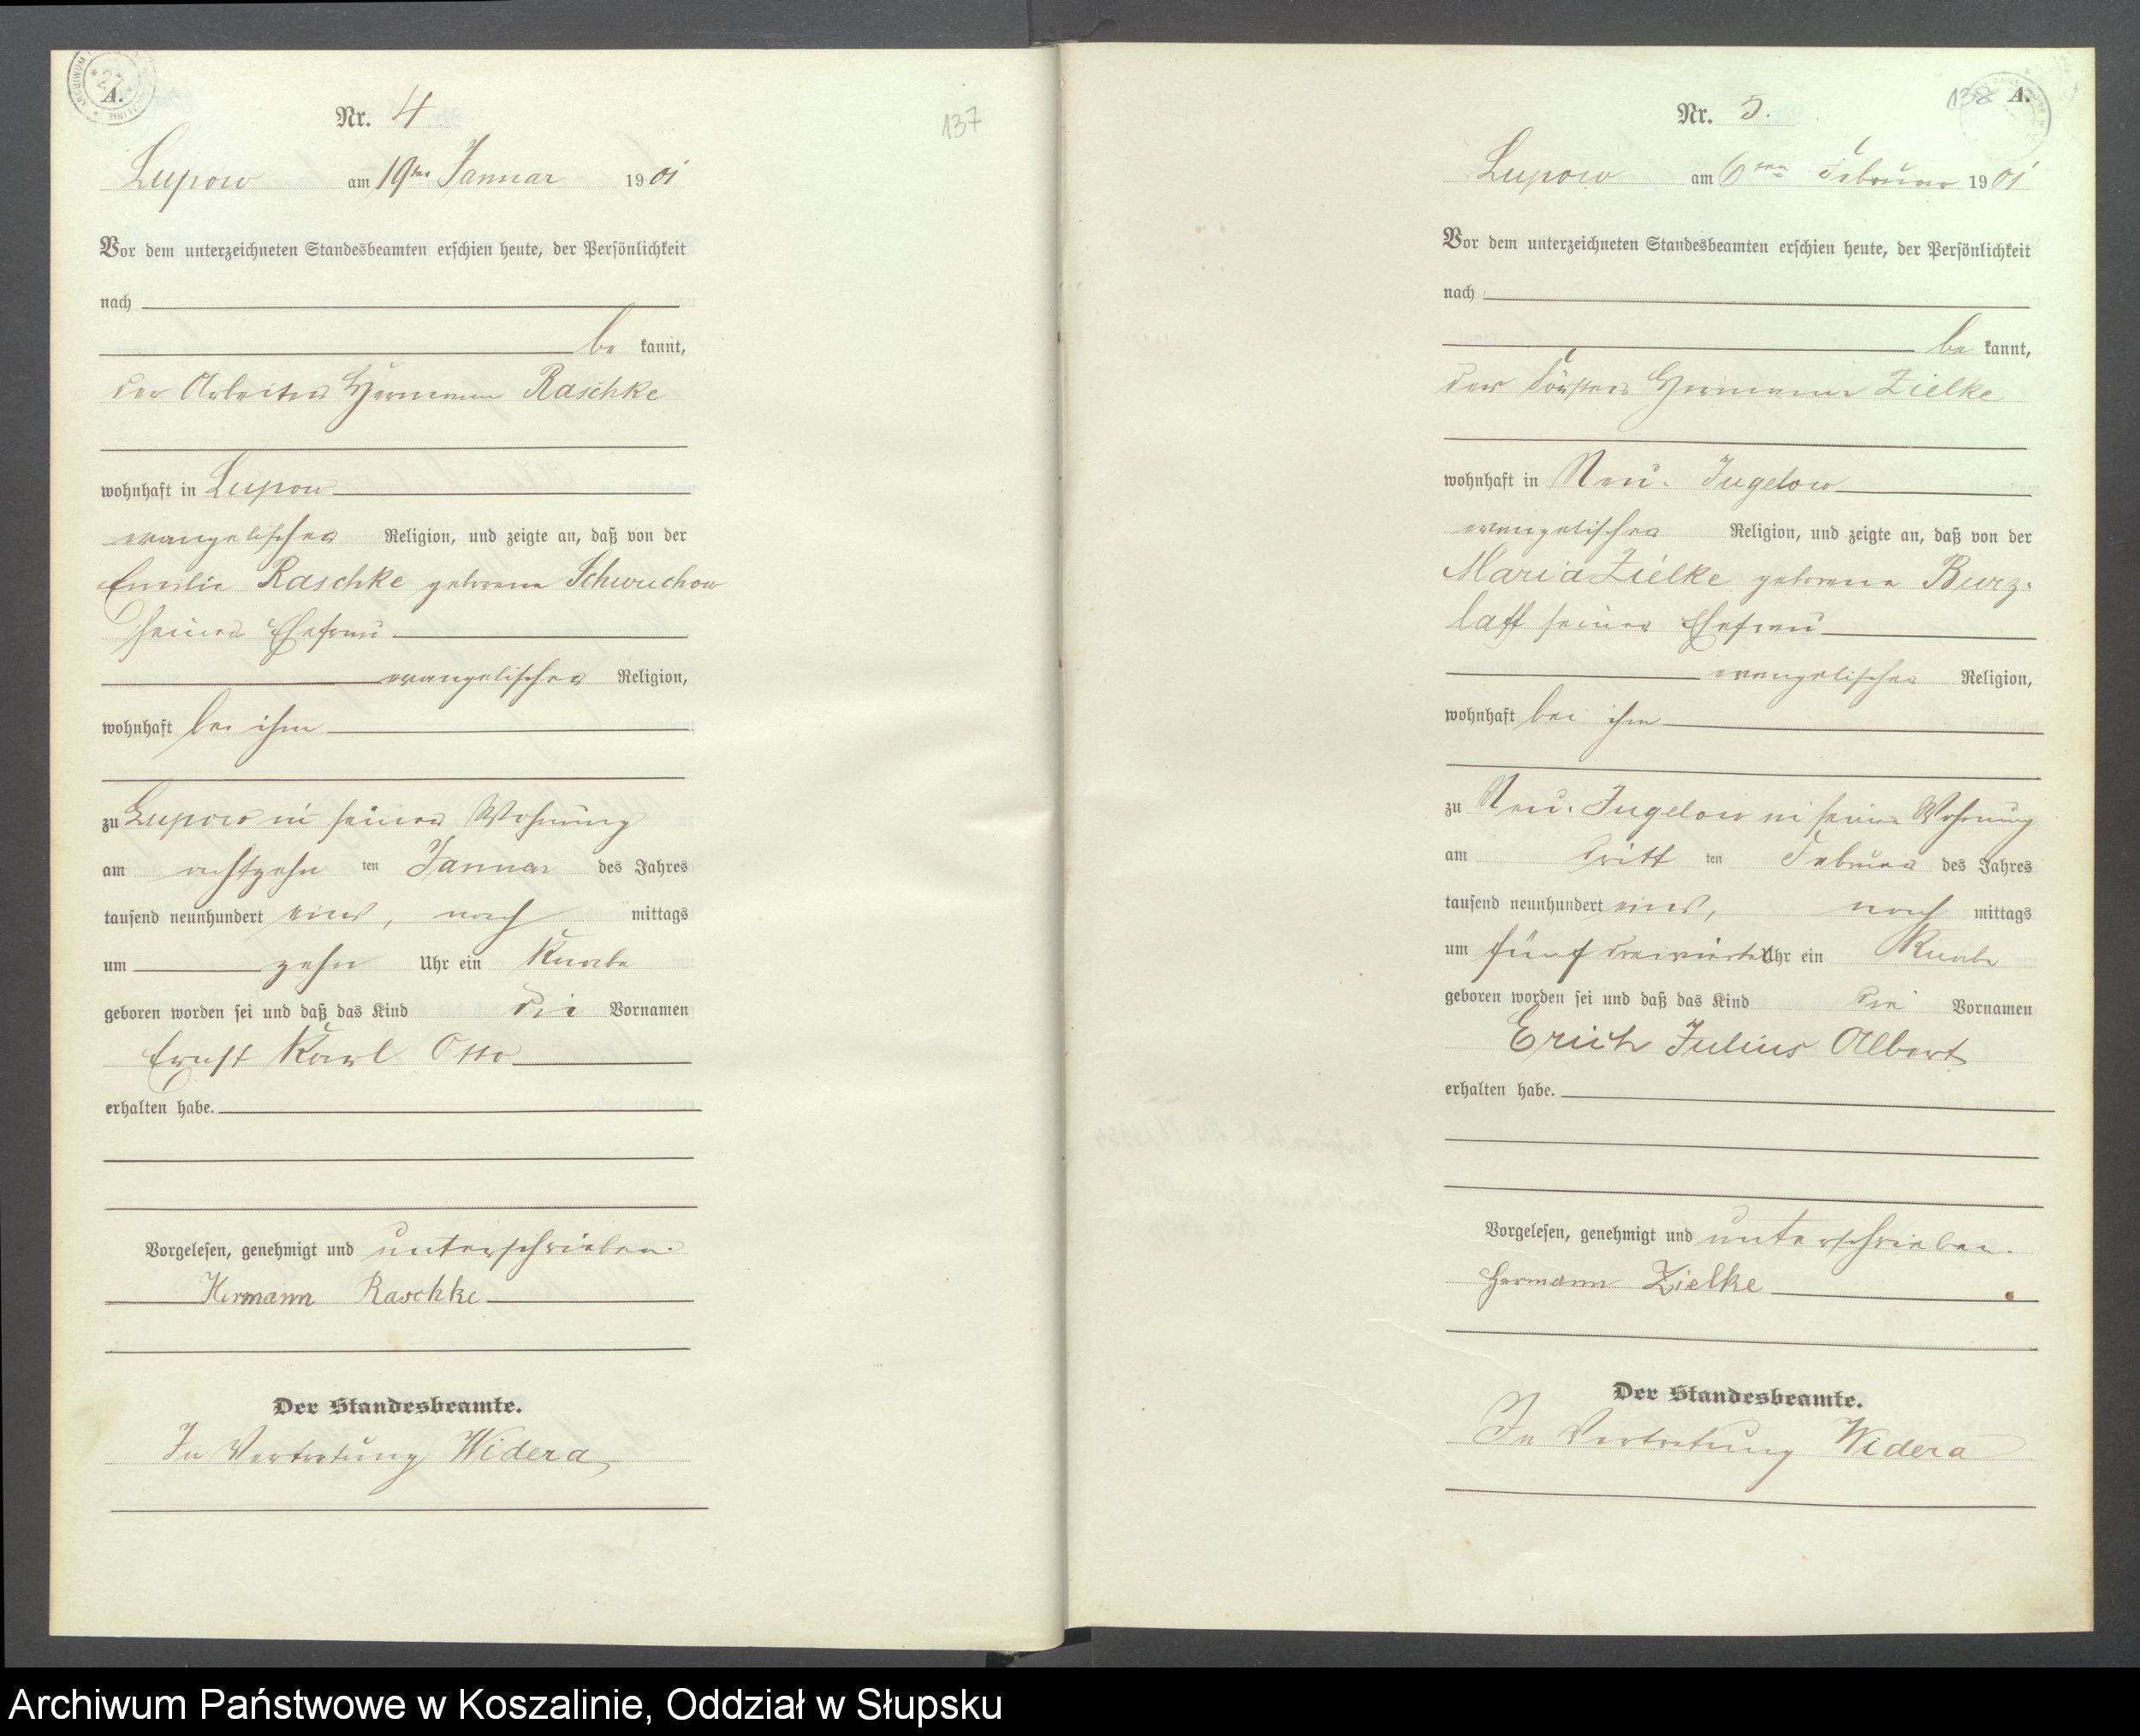 A.
Nr. 4
137
Lupow am 19ten Januar 1901
Vor dem unterzeichneten Standesbeamten erschien heute, der Persönlichkeit
nach
be kannt,
der Arbeiter Hermann Raschke
wohnhaft in Lupow
evangelischer Religion, und zeigte an, daß von der
Emilie Raschke geborene Schwuchow
seiner Ehefrau
evangelischer Religion,
wohnhaft bei ihm
zu Lupow in seiner Wohnung
am achtzehn ten Januar des Jahres
tausend neunhundert eins, nach mittags
um zehn Uhr ein Knabe
geboren worden sei und daß das Kind die Vornamen
Ernst Karl Otto
erhalten habe.
Vorgelesen, genehmigt und unterschrieben.
Hermann Raschke
Der Standesbeamte.
In Vertretung Widera
138 A.
Nr. 5.
Lupow am 6ten Februar 1901
Vor dem unterzeichneten Standesbeamten erschien heute, der Persönlichkeit
nach
be kannt,
der Förster Hermann Zielke
wohnhaft in Neu-Jugelow
evangelischer Religion, und zeigte an, daß von der
Maria Zielke geborene Burz-
laff seiner Ehefrau
evangelischer Religion,
wohnhaft bei ihm
zu Neu-Jugelow in seiner Wohnung
am dritt ten Februar des Jahres
tausend neunhundert eins, nach mittags
um fünf dreiviertel Uhr ein Knabe
geboren worden sei und daß das Kind die Vornamen
Erich Julius Albert
erhalten habe.
Vorgelesen, genehmigt und unterschrieben.
Hermann Zielke
Der Standesbeamte.
In Vertretung Widera
Archiwum Państwowe w Koszalinie, Oddział w Słupsku